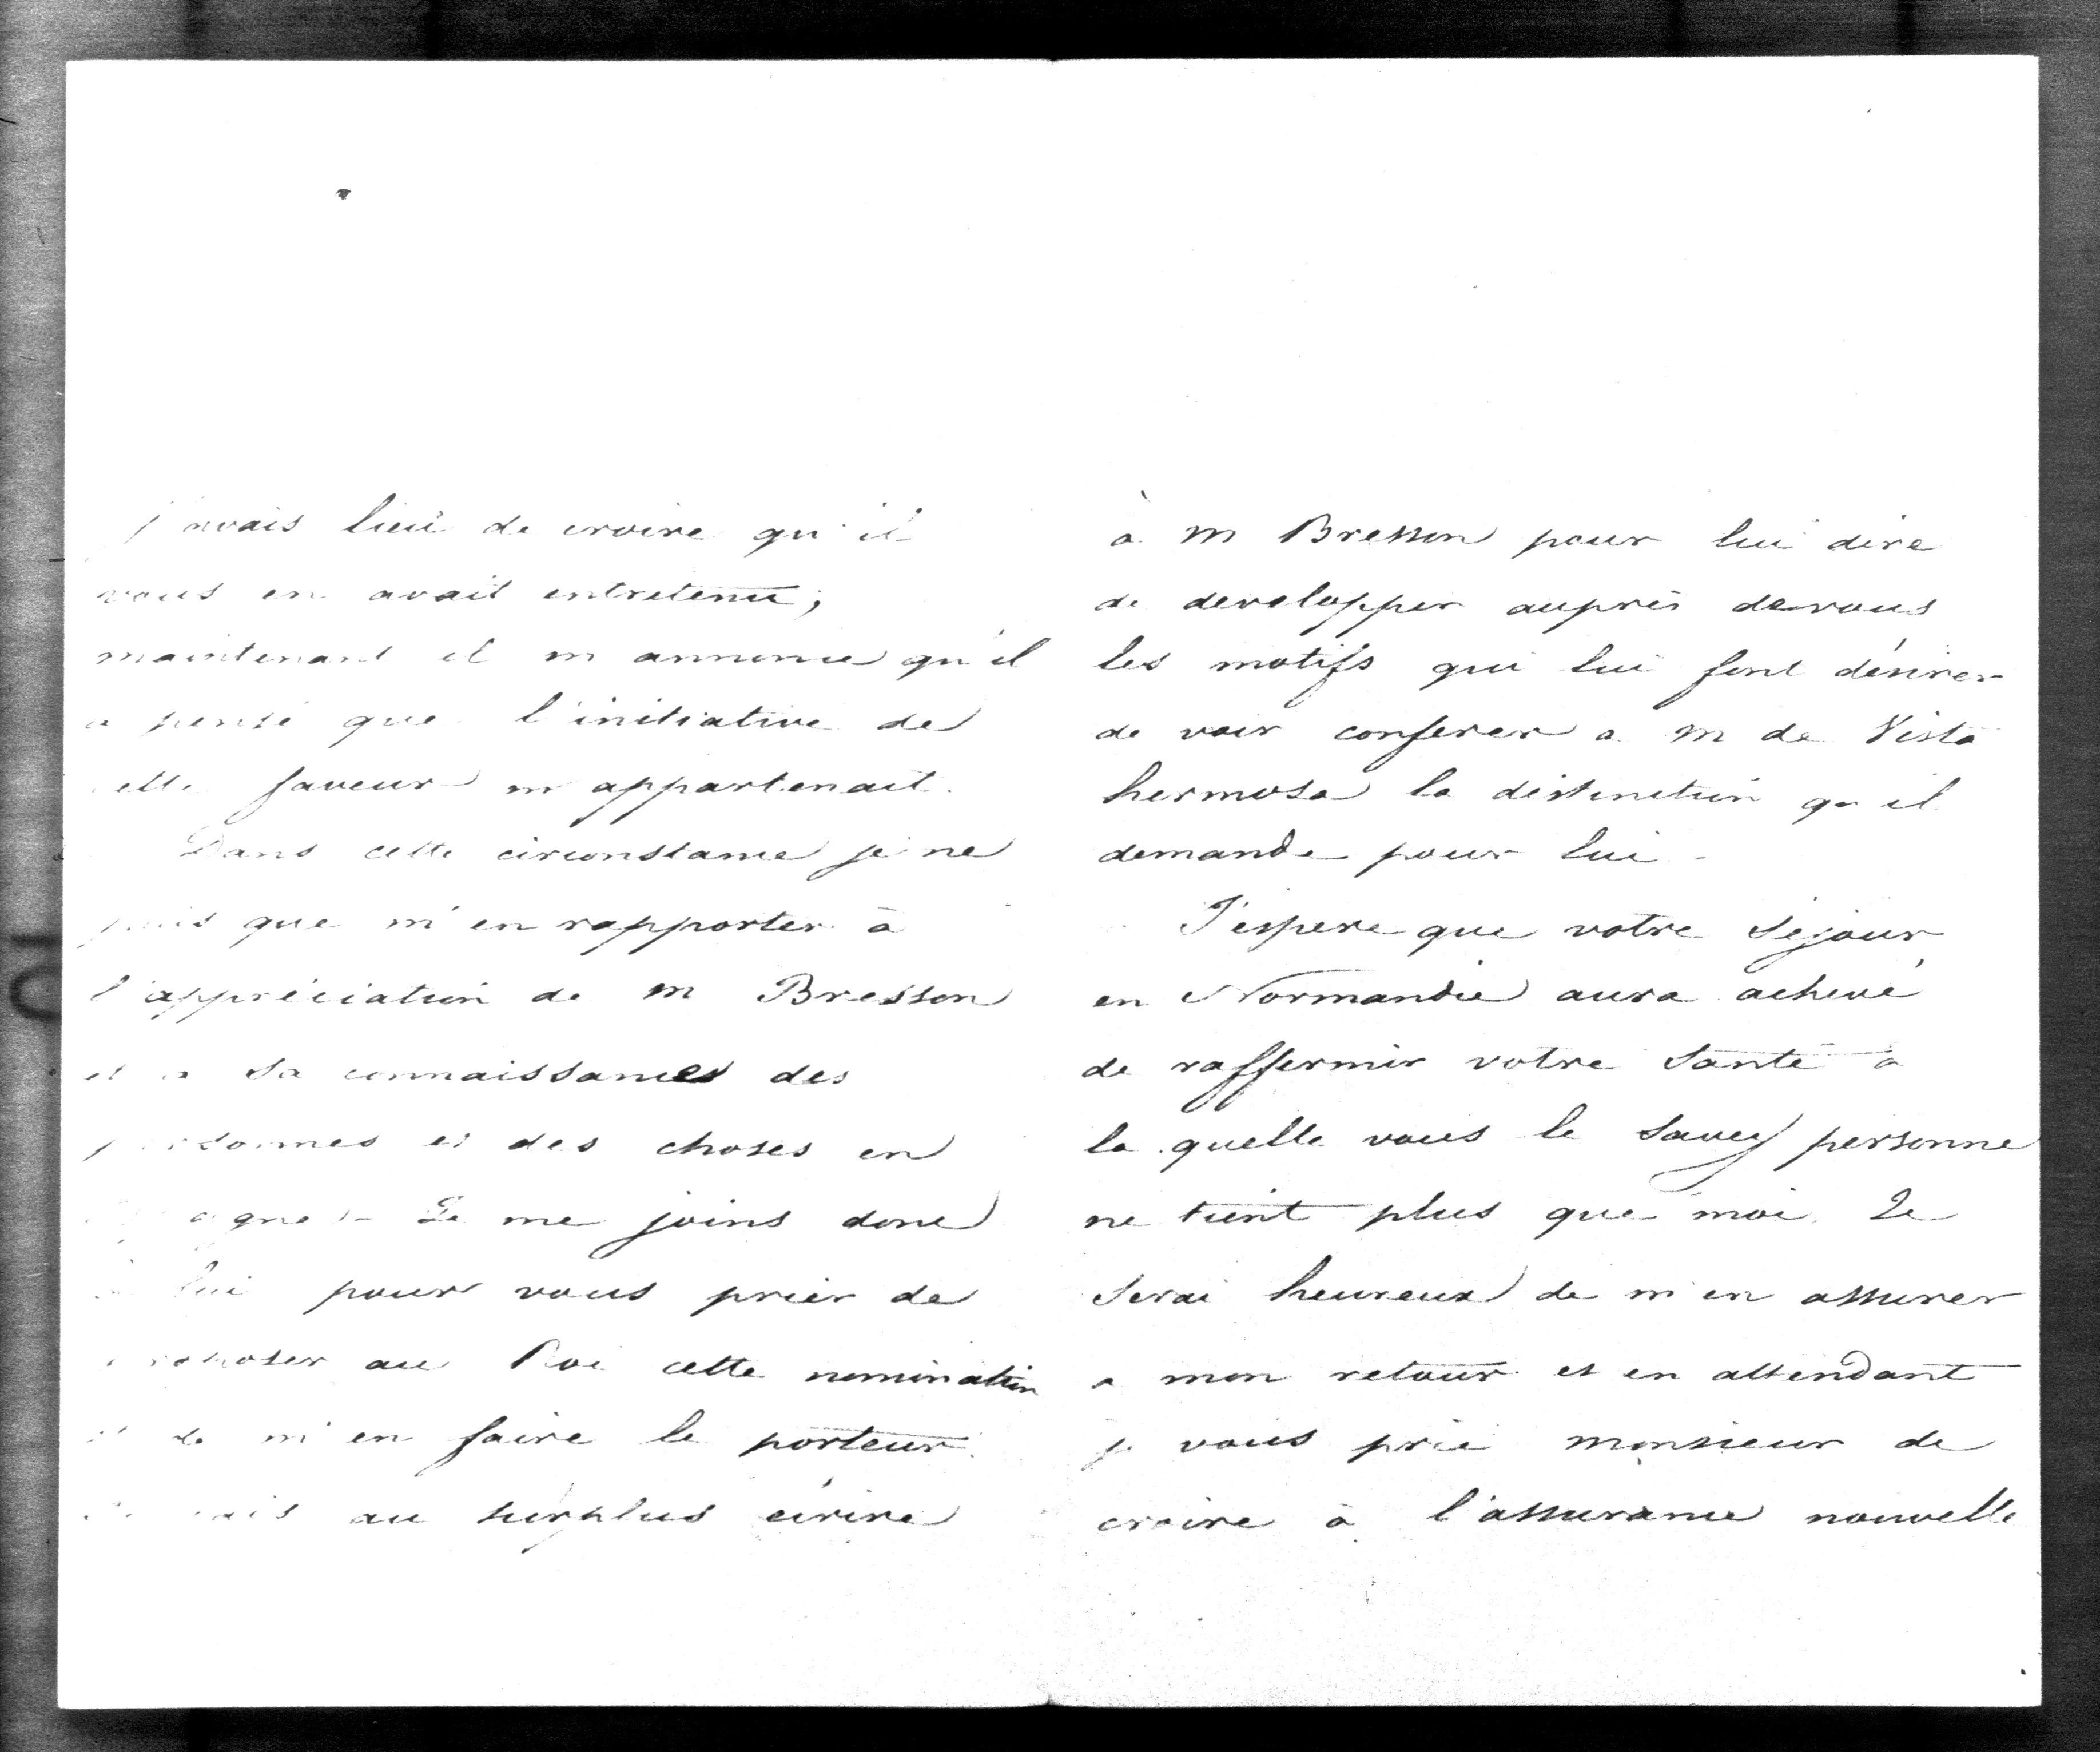 j'avais lieu de croire qu'il
vous en avait entretenu;
maintenant il m'annonce qu'il
a pensé que l'initiative de
cette faveur m'appartenait.
Dans cette circonstance je ne
puis que m'en rapporter à
l'appréciation de M Bresson
et a sa connaissances des
personnes et des choses en
Espagne - Je me joins donc
à lui pour vous prier de
proposer au Roi cette nomination
et de m'en faire le porteur.
Je vais au surplus écrire
à M Bresson pour lui dire
de developper auprès de vous
les motifs qui lui font désirer
de voir conferer a M de Vista
hermosa la distinction qu'il
demande pour lui -
J'espere que votre séjour
en Normandie aura achevé
de raffermir votre santé à
la quelle vous le savez personne
ne tient plus que moi. Je
serai heureux de m'en assurer
a mon retour et en attendant
je vous prie monsieur de
croire à l'assurance nouvelle